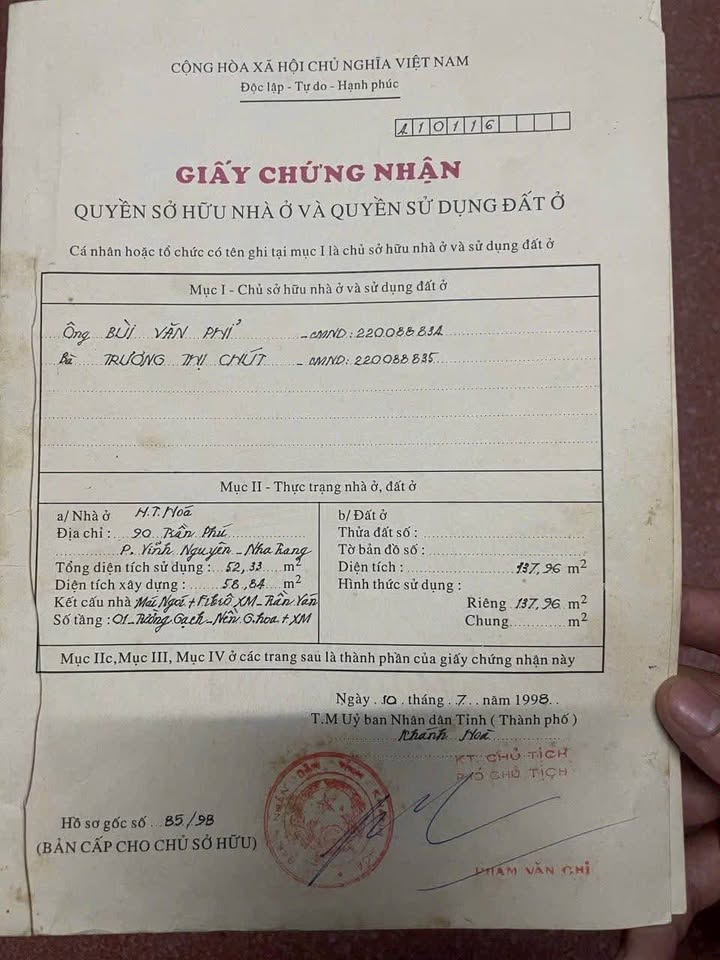 CỘNG HÒA XÃ HỘI CHỦ NGHĨA VIỆT NAM
Độc lập - Tự do - Hạnh phúc
10116
GIẤY CHỨNG NHẬN
QUYỀN SỞ HỮU NHÀ Ở VÀ QUYỀN SỬ DỤNG ĐẤT Ở
Cá nhân hoặc tổ chức có tên ghi tại mục I là chủ sở hữu nhà ở và sử dụng đất ở
Mục I - Chủ sở hữu nhà ở và sử dụng đất ở
Ông BÙI VĂN PHỈ - CMND: 220088834
Bà TRƯƠNG THỊ CHÚT - CMND: 220088835
Mục II - Thực trạng nhà ở, đất ở
a/ Nhà ở H.T. Hoá
Địa chỉ : 90 Trần Phú
P. Vĩnh Nguyên - Nha Trang
Tổng diện tích sử dụng : 52,33 m2
Diện tích xây dựng : 58,84 m2
Kết cấu nhà Mái Ngói + Fibrô XM - Trần Ván
Số tầng : 01 - Tường Gạch - Nền G.hoa + XM
b/ Đất ở
Thửa đất số :
Tờ bản đồ số :
Diện tích : 137,96 m2
Hình thức sử dụng :
Riêng 137,96 m2
Chung m2
Mục IIc,Mục III, Mục IV ở các trang sau là thành phần của giấy chứng nhận này
Ngày 10 tháng 7 năm 1998
T.M Uỷ ban Nhân dân Tỉnh ( Thành phố )
Khánh Hoà
KT. CHỦ TỊCH
PHÓ CHỦ TỊCH
Hồ sơ gốc số 85/98
(BẢN CẤP CHO CHỦ SỞ HỮU)
PHẠM VĂN CHI